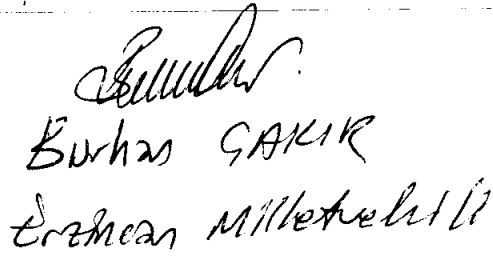 Burhan ÇAKIR
Erzincan Milletvekili